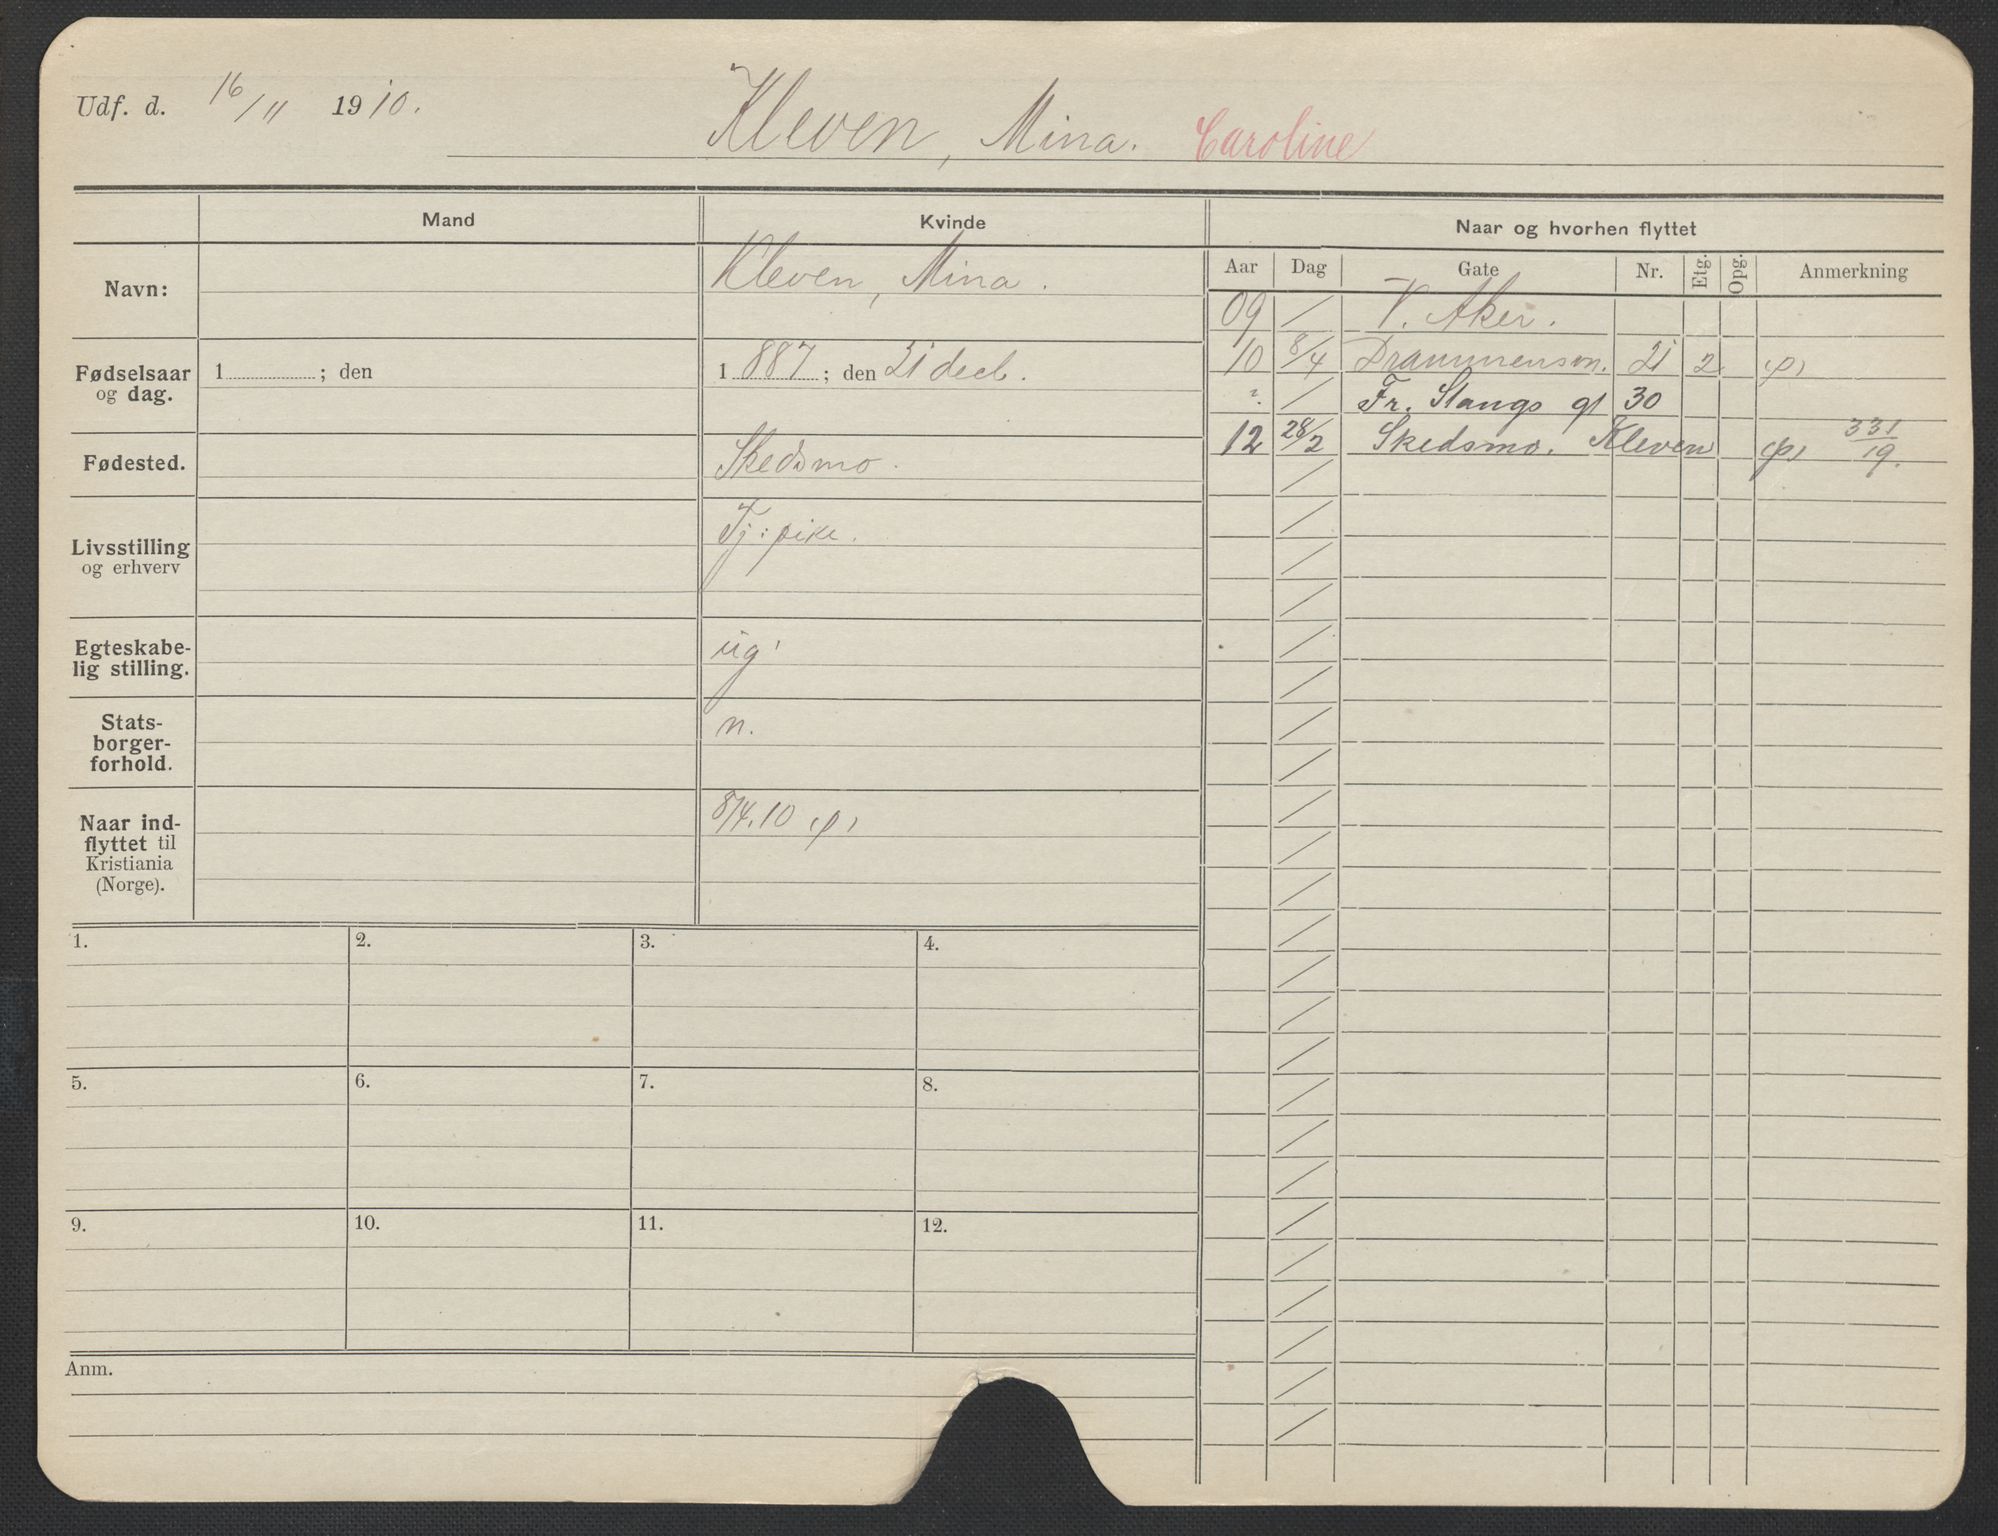 Udf. d. 16/11 1910.
Kleven, Mina. Caroline
Mand
Kvinde
Naar og hvorhen flyttet
Aar Dag Gate Nr. Etg. Opg. Anmerkning
Navn:
Kleven, Mina.
Fødselsaar og dag.
1 ; den
1 887 ; den 21 decb.
Fødested.
Skedsmo.
Livsstilling og erhverv
Tj: pike.
Egteskabe-
lig stilling.
ug
Stats-
borger-
forhold.
n.
Naar ind-
flyttet til
Kristiania
(Norge).
8/4.10 (p)
09 / V. Aker.
10 8/4 Drammensvn. 21 2 (p)
" / Fr. Stangs gt 30
12 28/2 Skedsmo. Kleven (p) 331/19.
1. 2. 3. 4.
5. 6. 7. 8.
9. 10. 11. 12.
Anm.